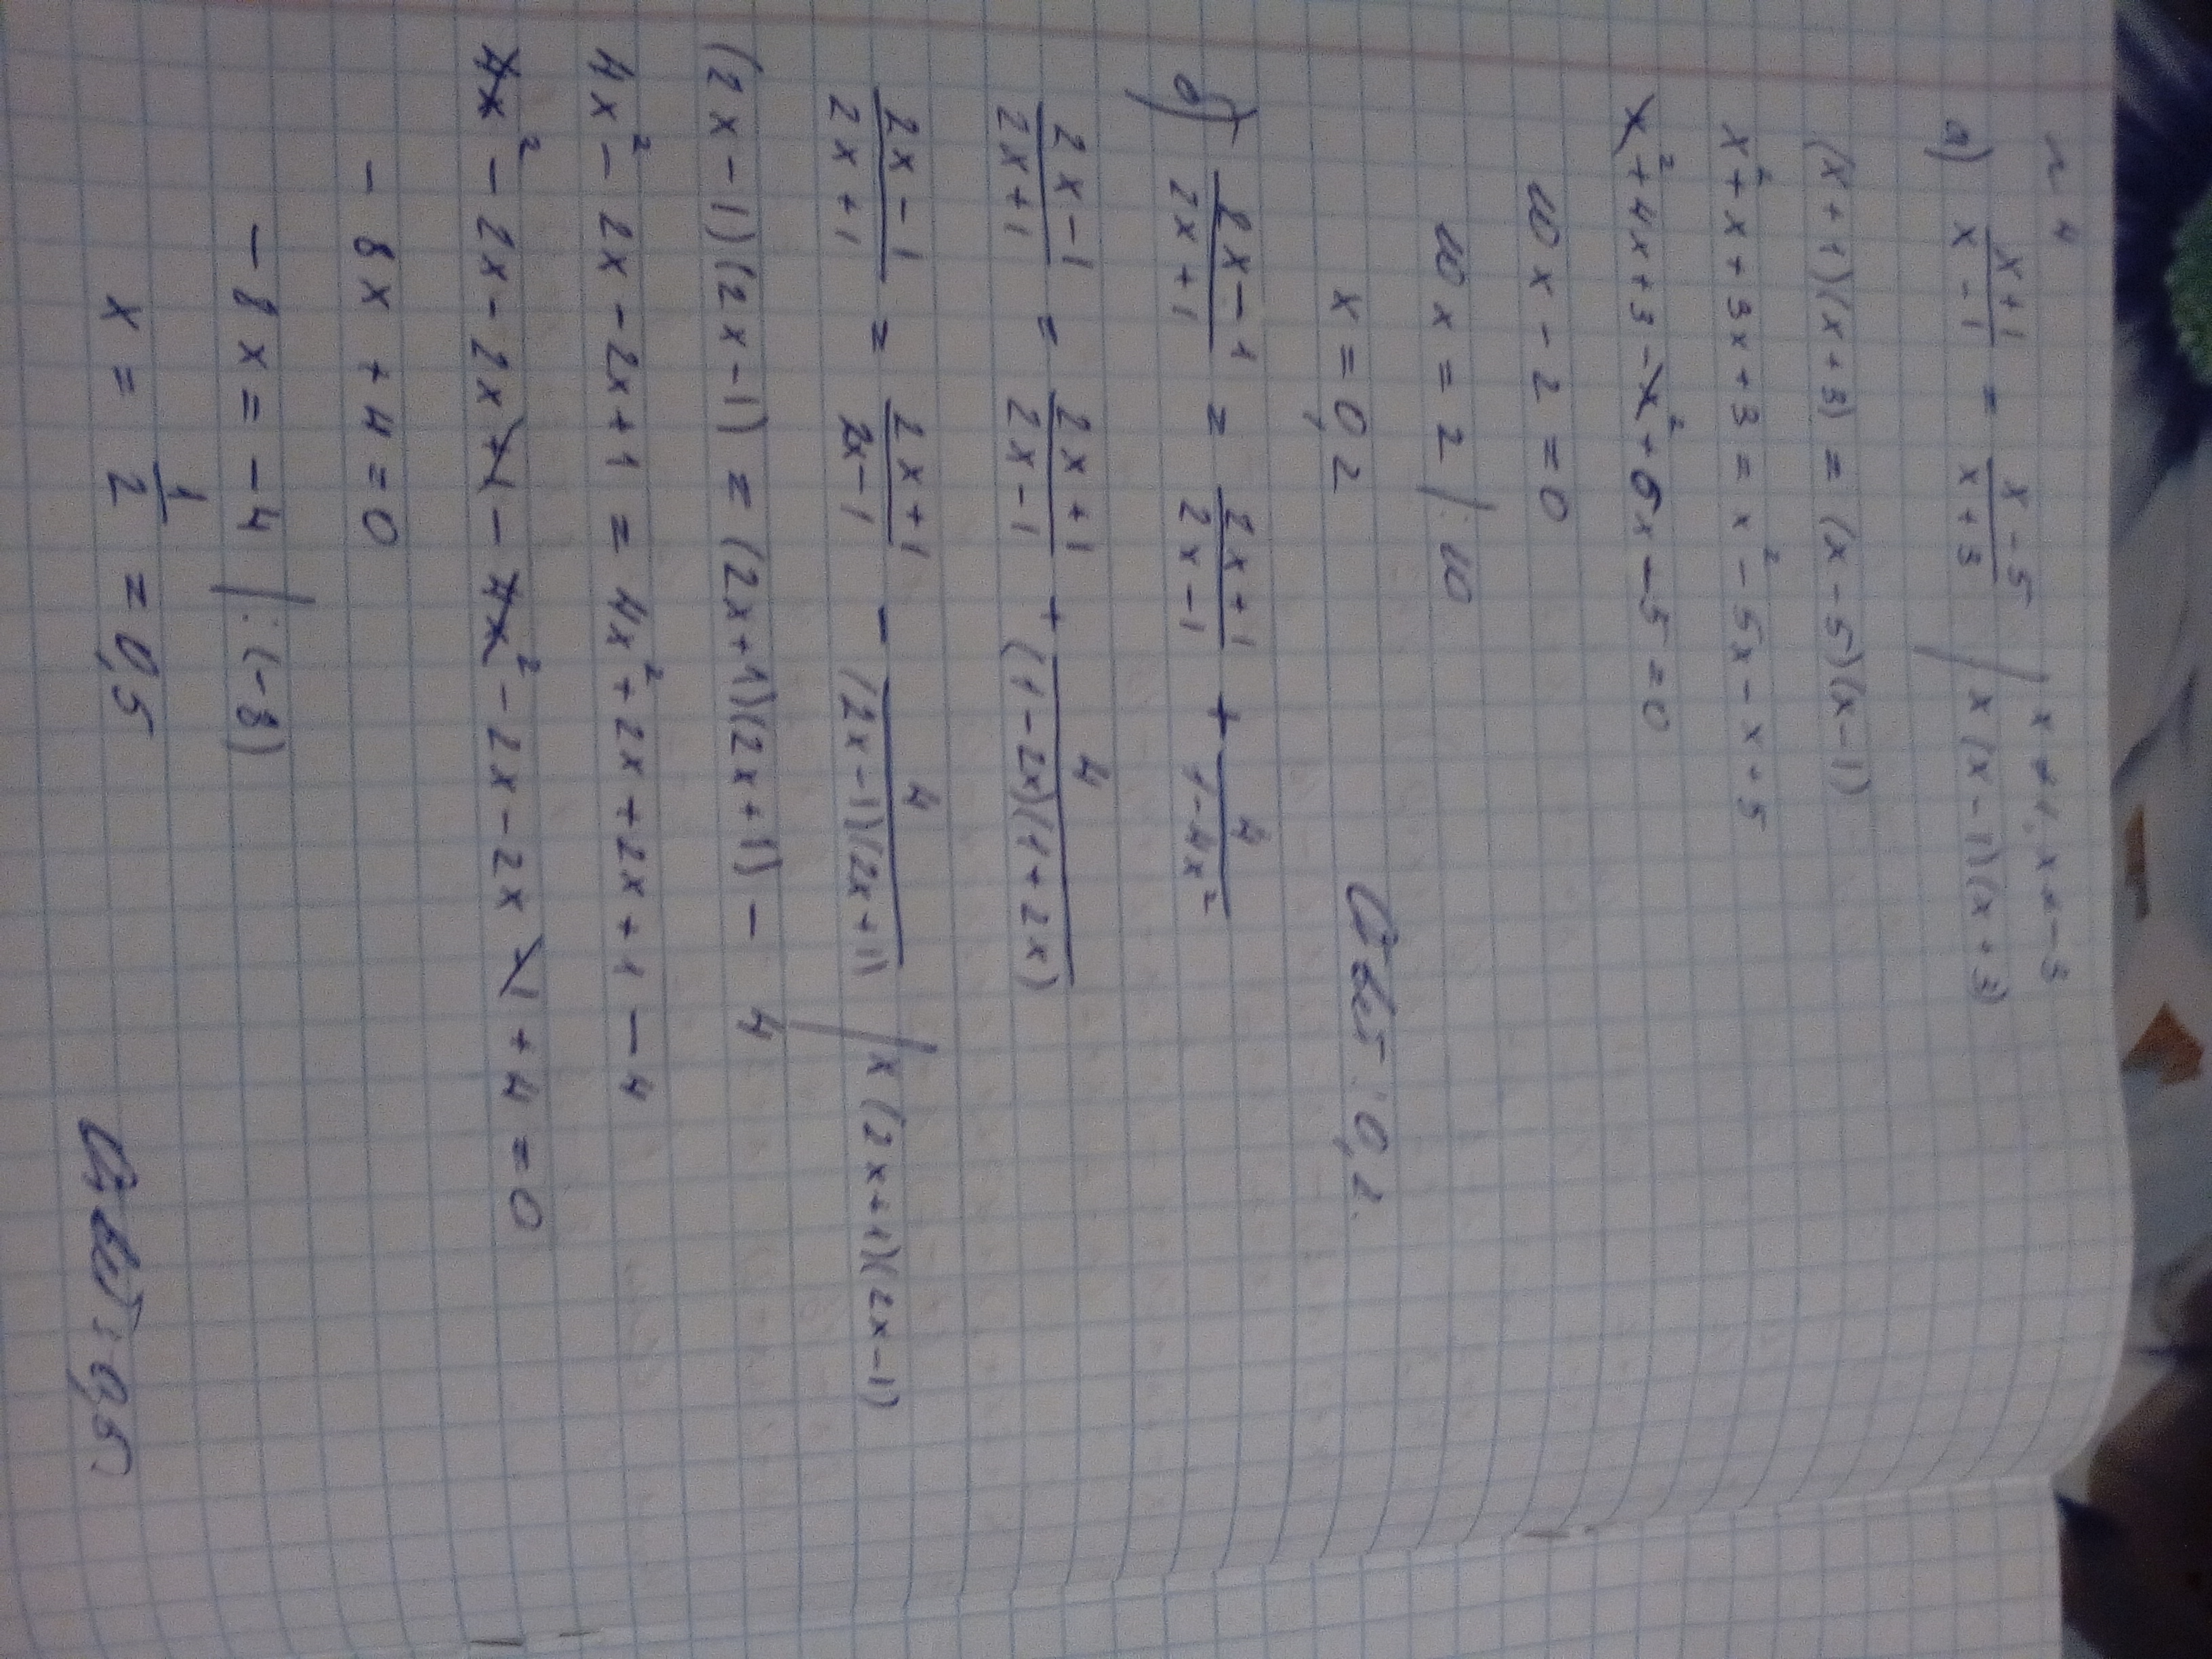 № 4
а) (x+1)/(x-1) = (x-5)/(x+3) / x ≠ 1; x ≠ -3
/ × (x-1)(x+3)
(x+1)(x+3) = (x-5)(x-1)
x² + x + 3x + 3 = x² - 5x - x + 5
x² + 4x + 3 - x² + 6x - 5 = 0
10x - 2 = 0
10x = 2 / : 10
x = 0,2
Ответ: 0,2.
б) (2x-1)/(2x+1) = (2x+1)/(2x-1) + 4/(1-4x²)
(2x-1)/(2x+1) = (2x+1)/(2x-1) + 4/((1-2x)(1+2x))
(2x-1)/(2x+1) = (2x+1)/(2x-1) - 4/((2x-1)(2x+1)) / × (2x+1)(2x-1)
(2x-1)(2x-1) = (2x+1)(2x+1) - 4
4x² - 2x - 2x + 1 = 4x² + 2x + 2x + 1 - 4
4x² - 2x - 2x + 1 - 4x² - 2x - 2x - 1 + 4 = 0
- 8x + 4 = 0
- 8x = -4 / : (-8)
x = 1/2 = 0,5
Ответ: 0,5